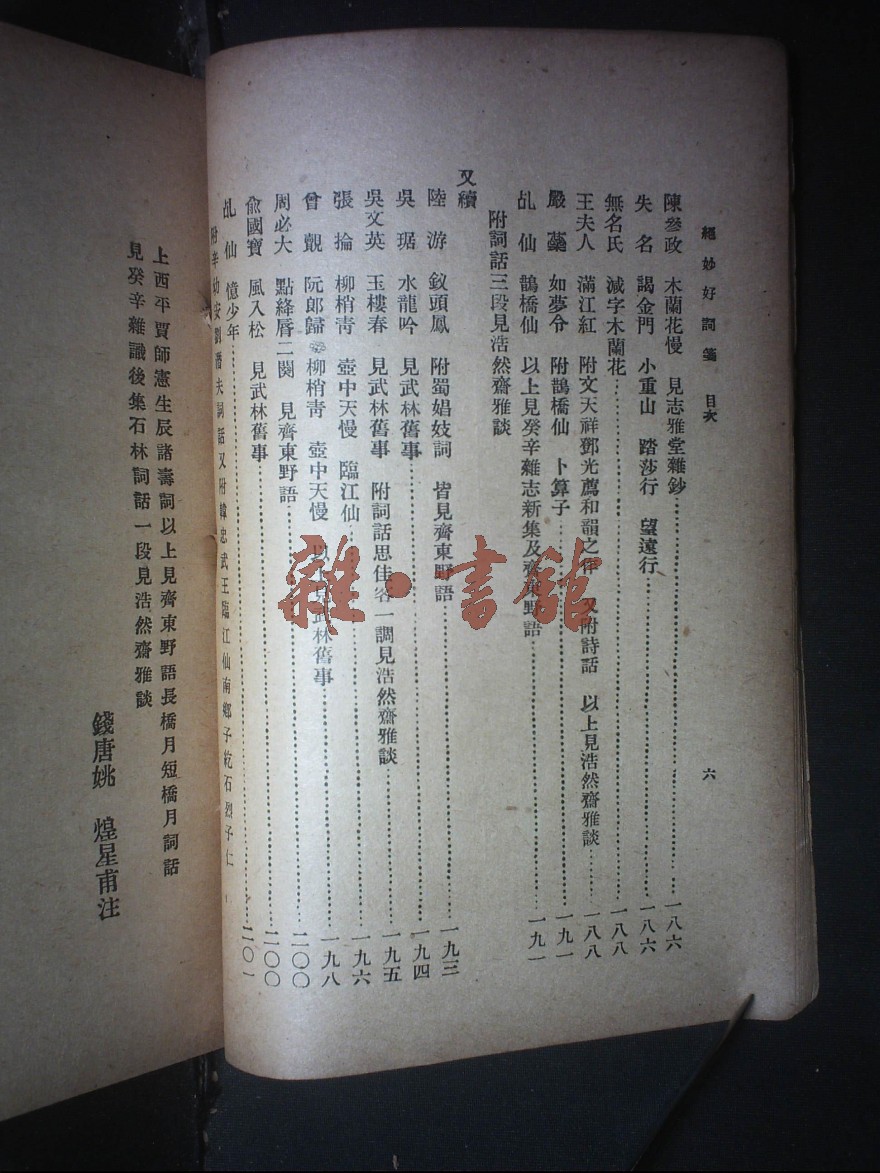 絕妙好詞箋 目次 六
陳參政 木蘭花慢 見志雅堂雜鈔……一八六
失名 謁金門 小重山 踏莎行 望遠行……一八六
無名氏 減字木蘭花……一八八
王夫人 滿江紅 附文天祥鄧光薦和韻之作 又附詩話 以上見浩然齋雅談……一八八
嚴蘂 如夢令 附鵲橋仙 卜算子……一九一
乩仙 鵲橋仙 以上見癸辛雜志新集及齊東野語……一九一
附詞話三段見浩然齋雅談
又續
陸游 釵頭鳳 附蜀娼妓詞 皆見齊東野語……一九三
吳琚 水龍吟 見武林舊事……一九四
吳文英 玉樓春 見武林舊事 附詞話思佳客一調見浩然齋雅談……一九五
張掄 柳梢青 壺中天慢 臨江仙……一九六
曾覿 阮郎歸 柳梢青 壺中天慢 以上見武林舊事……一九八
周必大 點絳唇二闋 見齊東野語……二〇〇
俞國寶 風入松 見武林舊事……二〇〇
乩仙 憶少年……二〇一
附辛幼安劉潛夫詞話又附韓忠武王臨江仙南鄉子紇石烈子仁
上西平賈師憲生辰諸壽詞以上見齊東野語長橋月短橋月詞話
見癸辛雜識後集石林詞話一段見浩然齋雅談
錢唐姚 煌星甫注
雜·書館